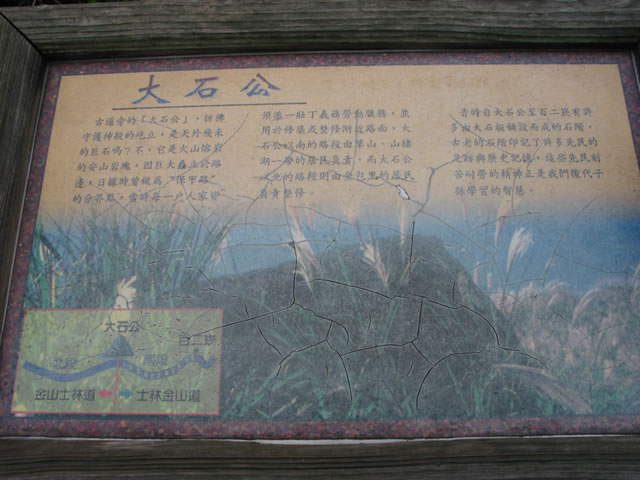 大石公
古道旁的「大石公」，彷彿
守護神般的屹立，是天外飛來
的巨石嗎？不，它是火山熔岩
的安山岩塊，因巨大矗立於路
邊，日據時曾做為"保甲路"
的分界點，當時每一戶人家皆
須派一壯丁義務勞動服務，並
用於修築或整修附近路面，大
石公以南的路段由草山、山豬
湖一帶的居民負責，而大石公
以北的路段則由金包里的居民
負責整修。
昔時自大石公至百二崁有許
多由大石板鋪設而成的石階，
古老的石階印記了許多先民的
足跡與歷史記憶，這些先民刻
苦耐勞的精神正是我們後代子
孫學習的智慧。
大石公
百二崁
北段
南段
金山士林道
士林金山道